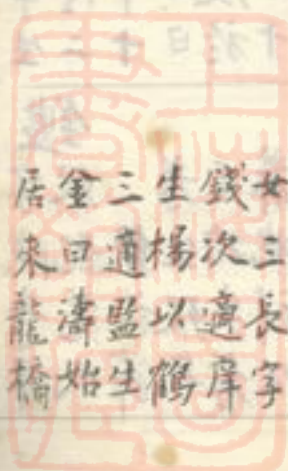 女三長字
錢次適庠
生楊以鶴
三適監生
金曰濤始
居來龍橋